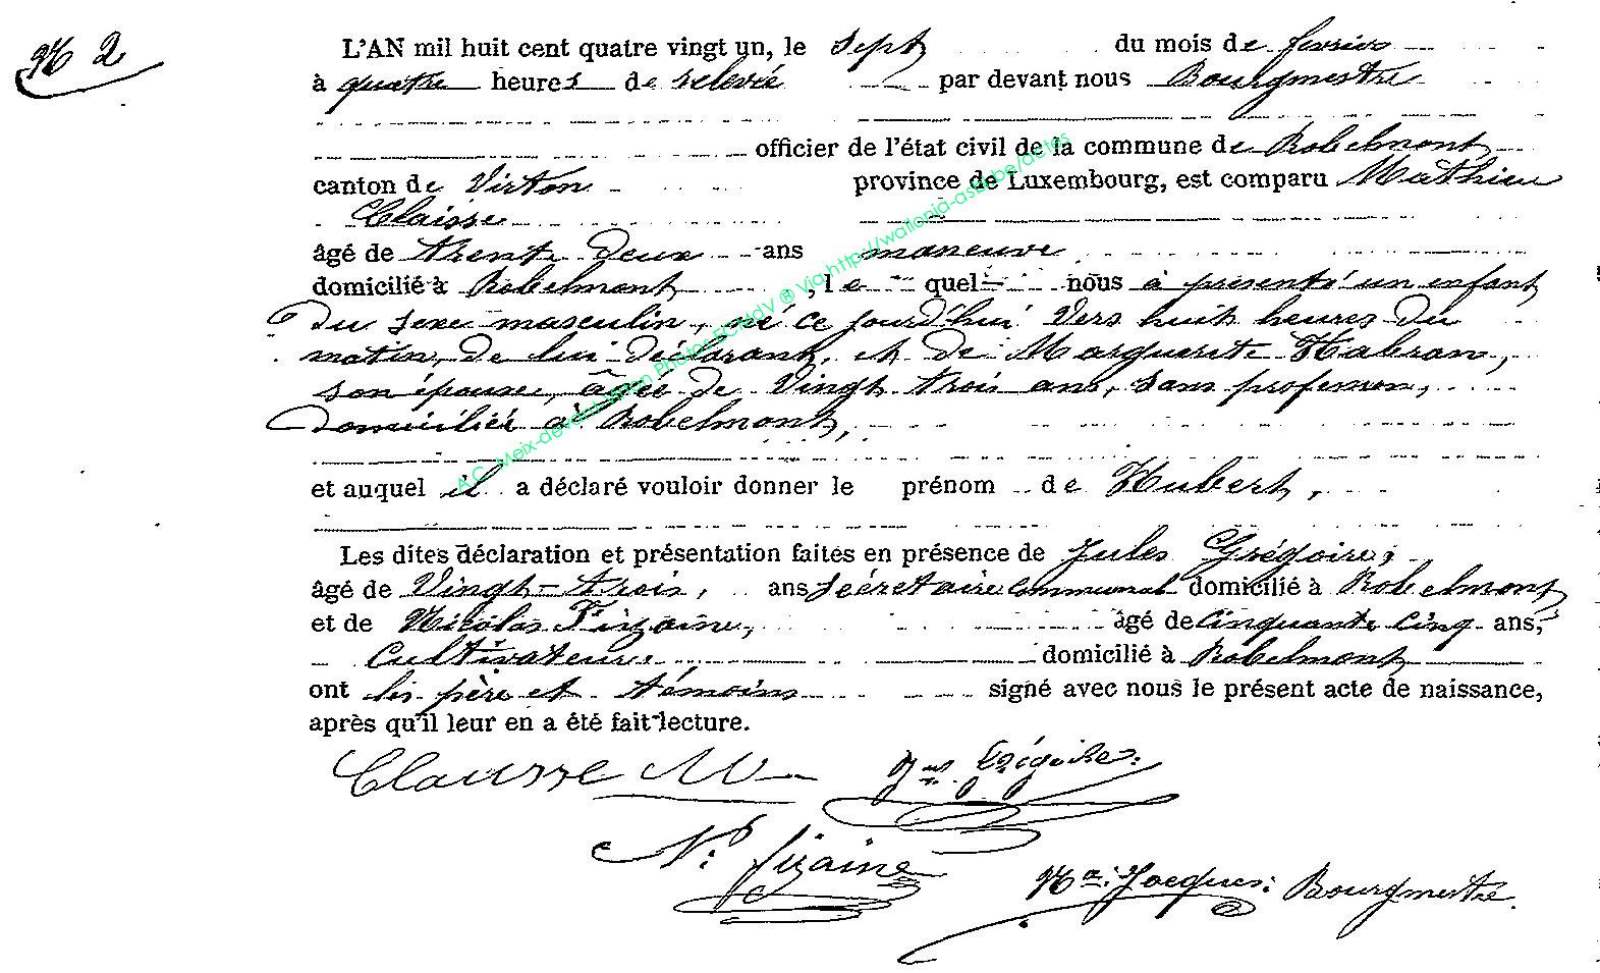 N° 2
L'AN mil huit cent quatre vingt un, le sept du mois de fevrier
à quatre heures de relevée par devant nous Bourgmestre
officier de l'état civil de la commune de Robelmont
canton de Virton province de Luxembourg, est comparu Mathieu
Claisse
âgé de trente deux ans maneuvre
domicilié à Robelmont, lequel nous à présenté un enfant
du sexe masculin, né ce jourd'hui vers huit heures du
matin, de lui déclarant, et de Marguerite Habran,
son épouse, âgée de vingt trois ans, sans profession,
domiciliés à Robelmont,
et auquel il a déclaré vouloir donner le prénom de Hubert,
Les dites déclaration et présentation faites en présence de Jules Grégoire,
âgé de vingt-trois, ans secrétaire communal domicilié à Robelmont
et de Nicolas Fizaine, âgé de cinquante cinq ans,
cultivateur, domicilié à Robelmont
ont les père et témoins signé avec nous le présent acte de naissance,
après qu'il leur en a été fait lecture.
Clausse M
Jes Grégoire
N. fizaine
Jacques: Bourgmestre.
A.C. Meix-devant-Virton Photos ECMdV ® Via http://wallonia-asbl.be/dates